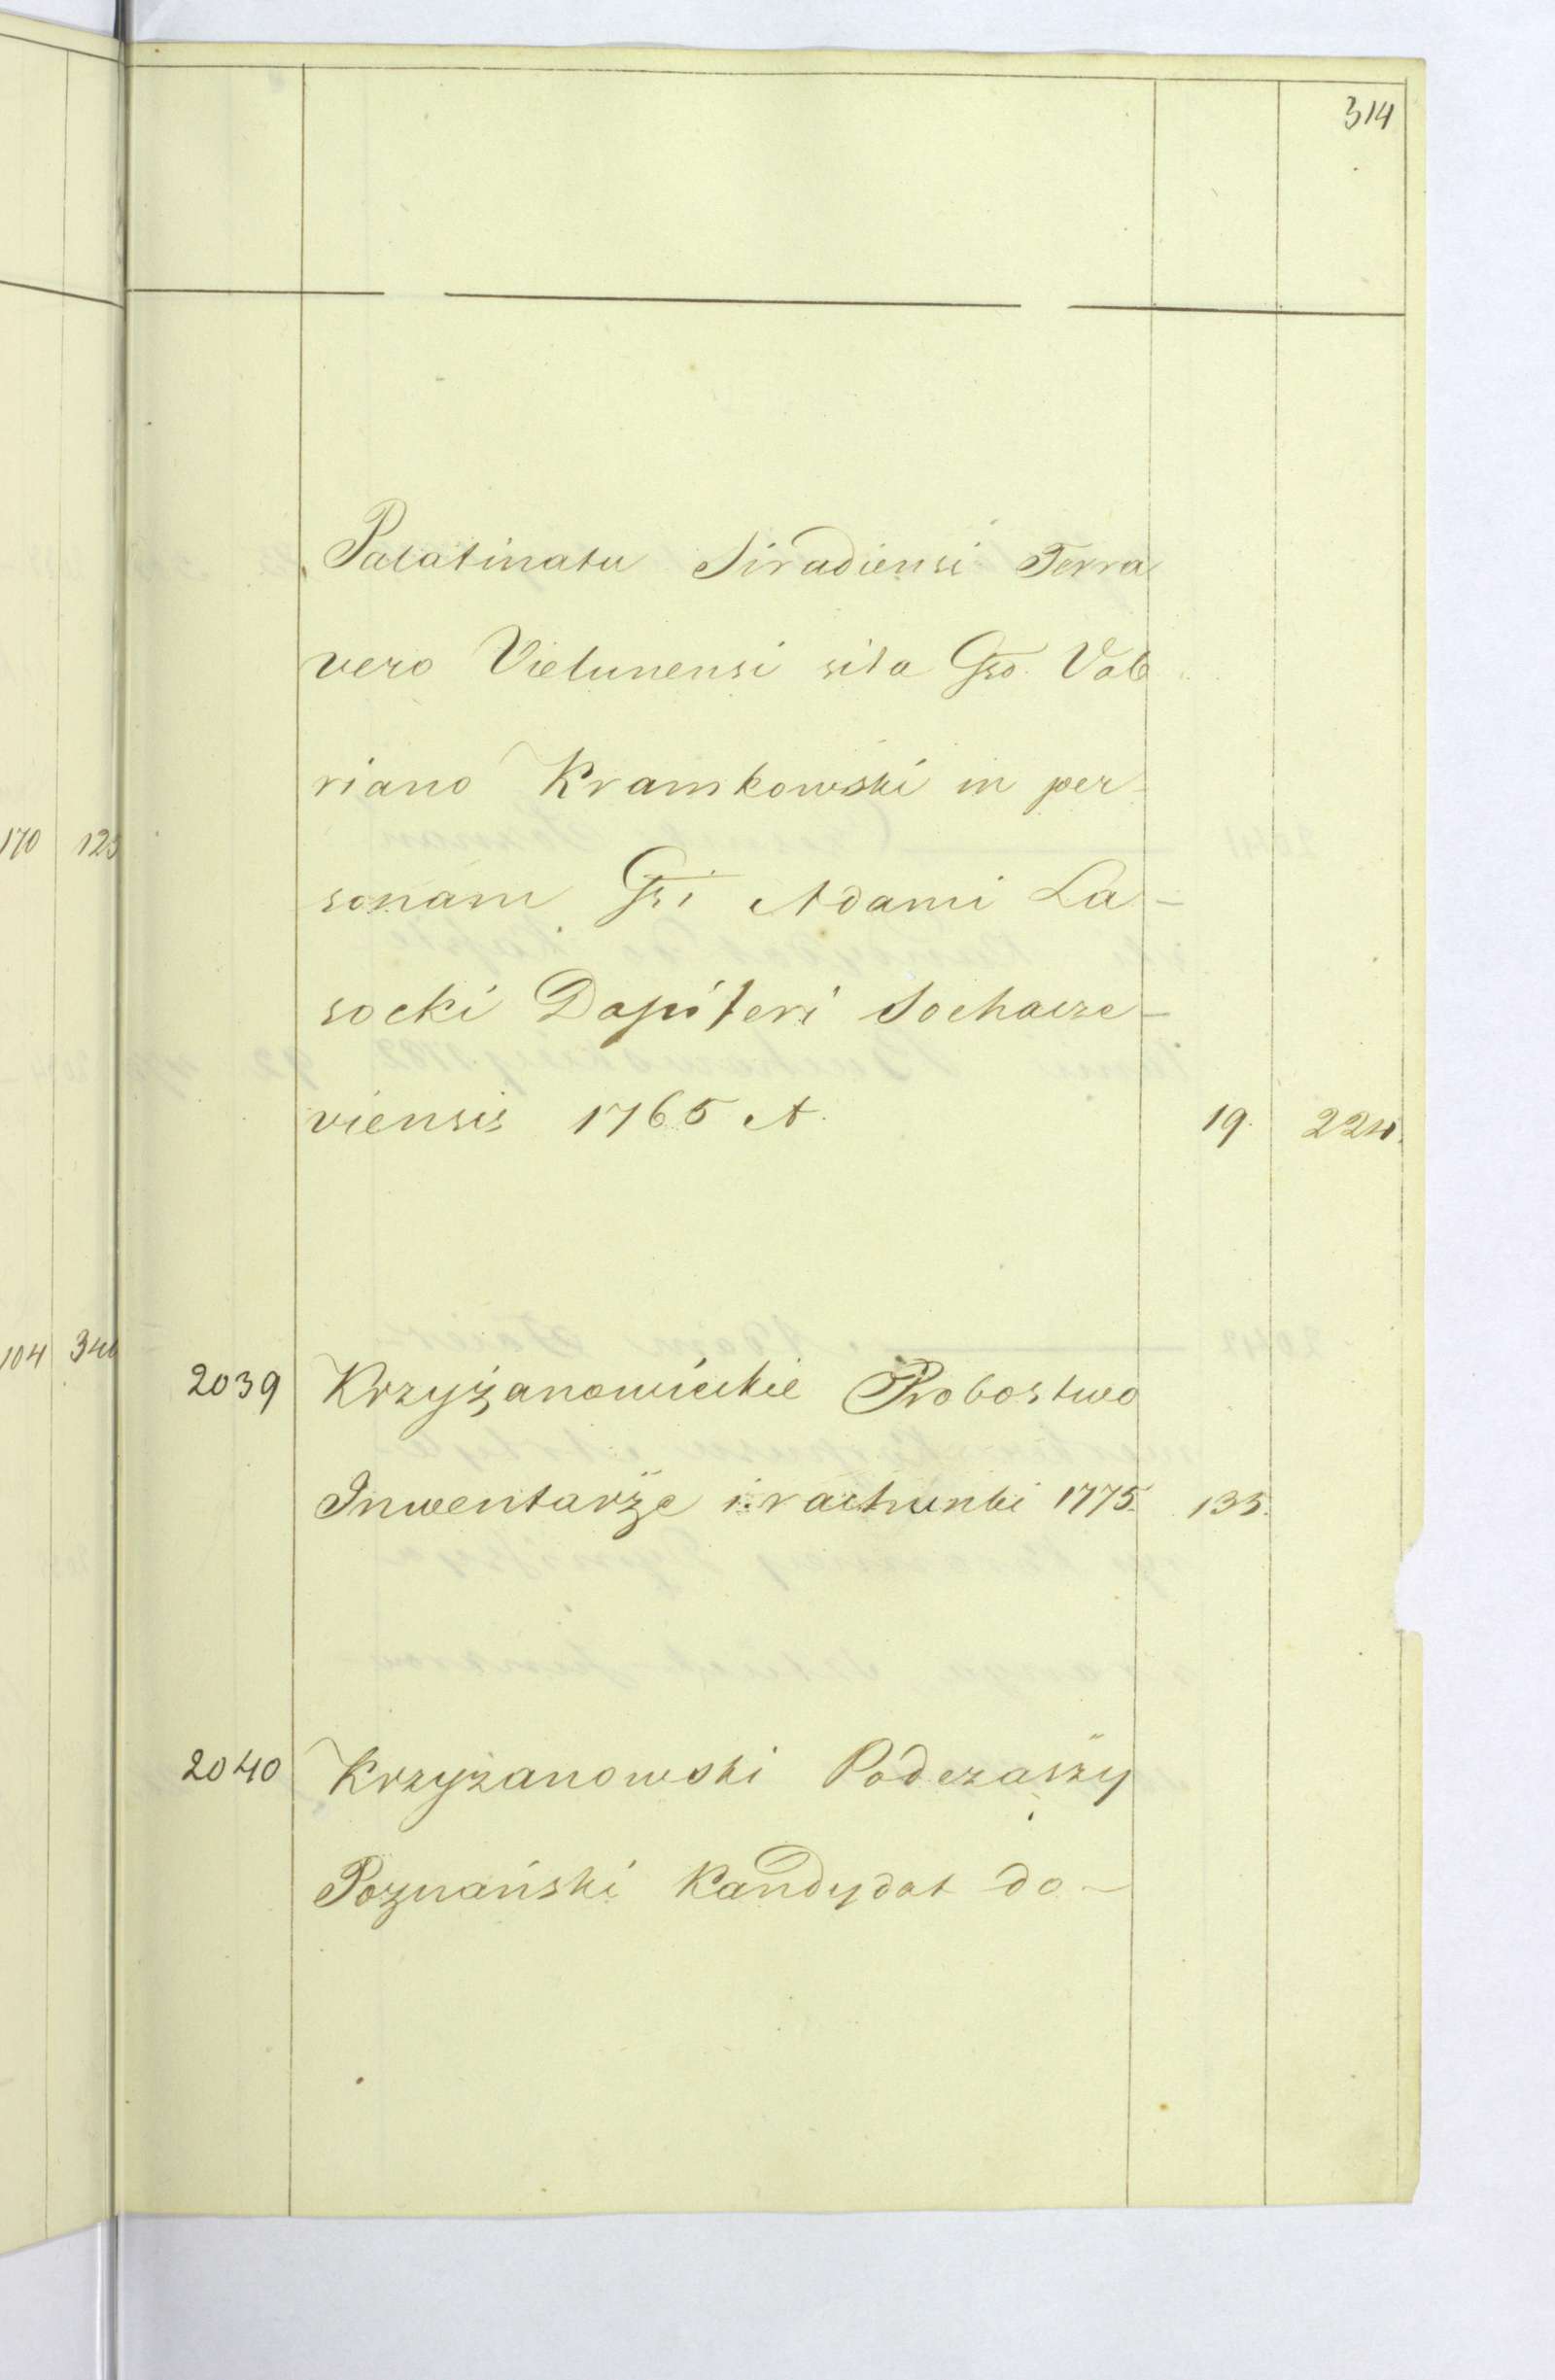 314
Palatinatu Siradiensi Terra
vero Vielunensi sita Gso. Vale
riano Kramkowski in per-
sonam Gsi Adami La-
socki Dapiferi Sochacze-
viensis 1765 A. 19. 224.
170 123
104 346
2039 Krzyżanowickie Probostwo
Inwentarże i rachunki 1775. 135.
2040 Krzyżanowski Podczaszy
Poznański Kandydat do-